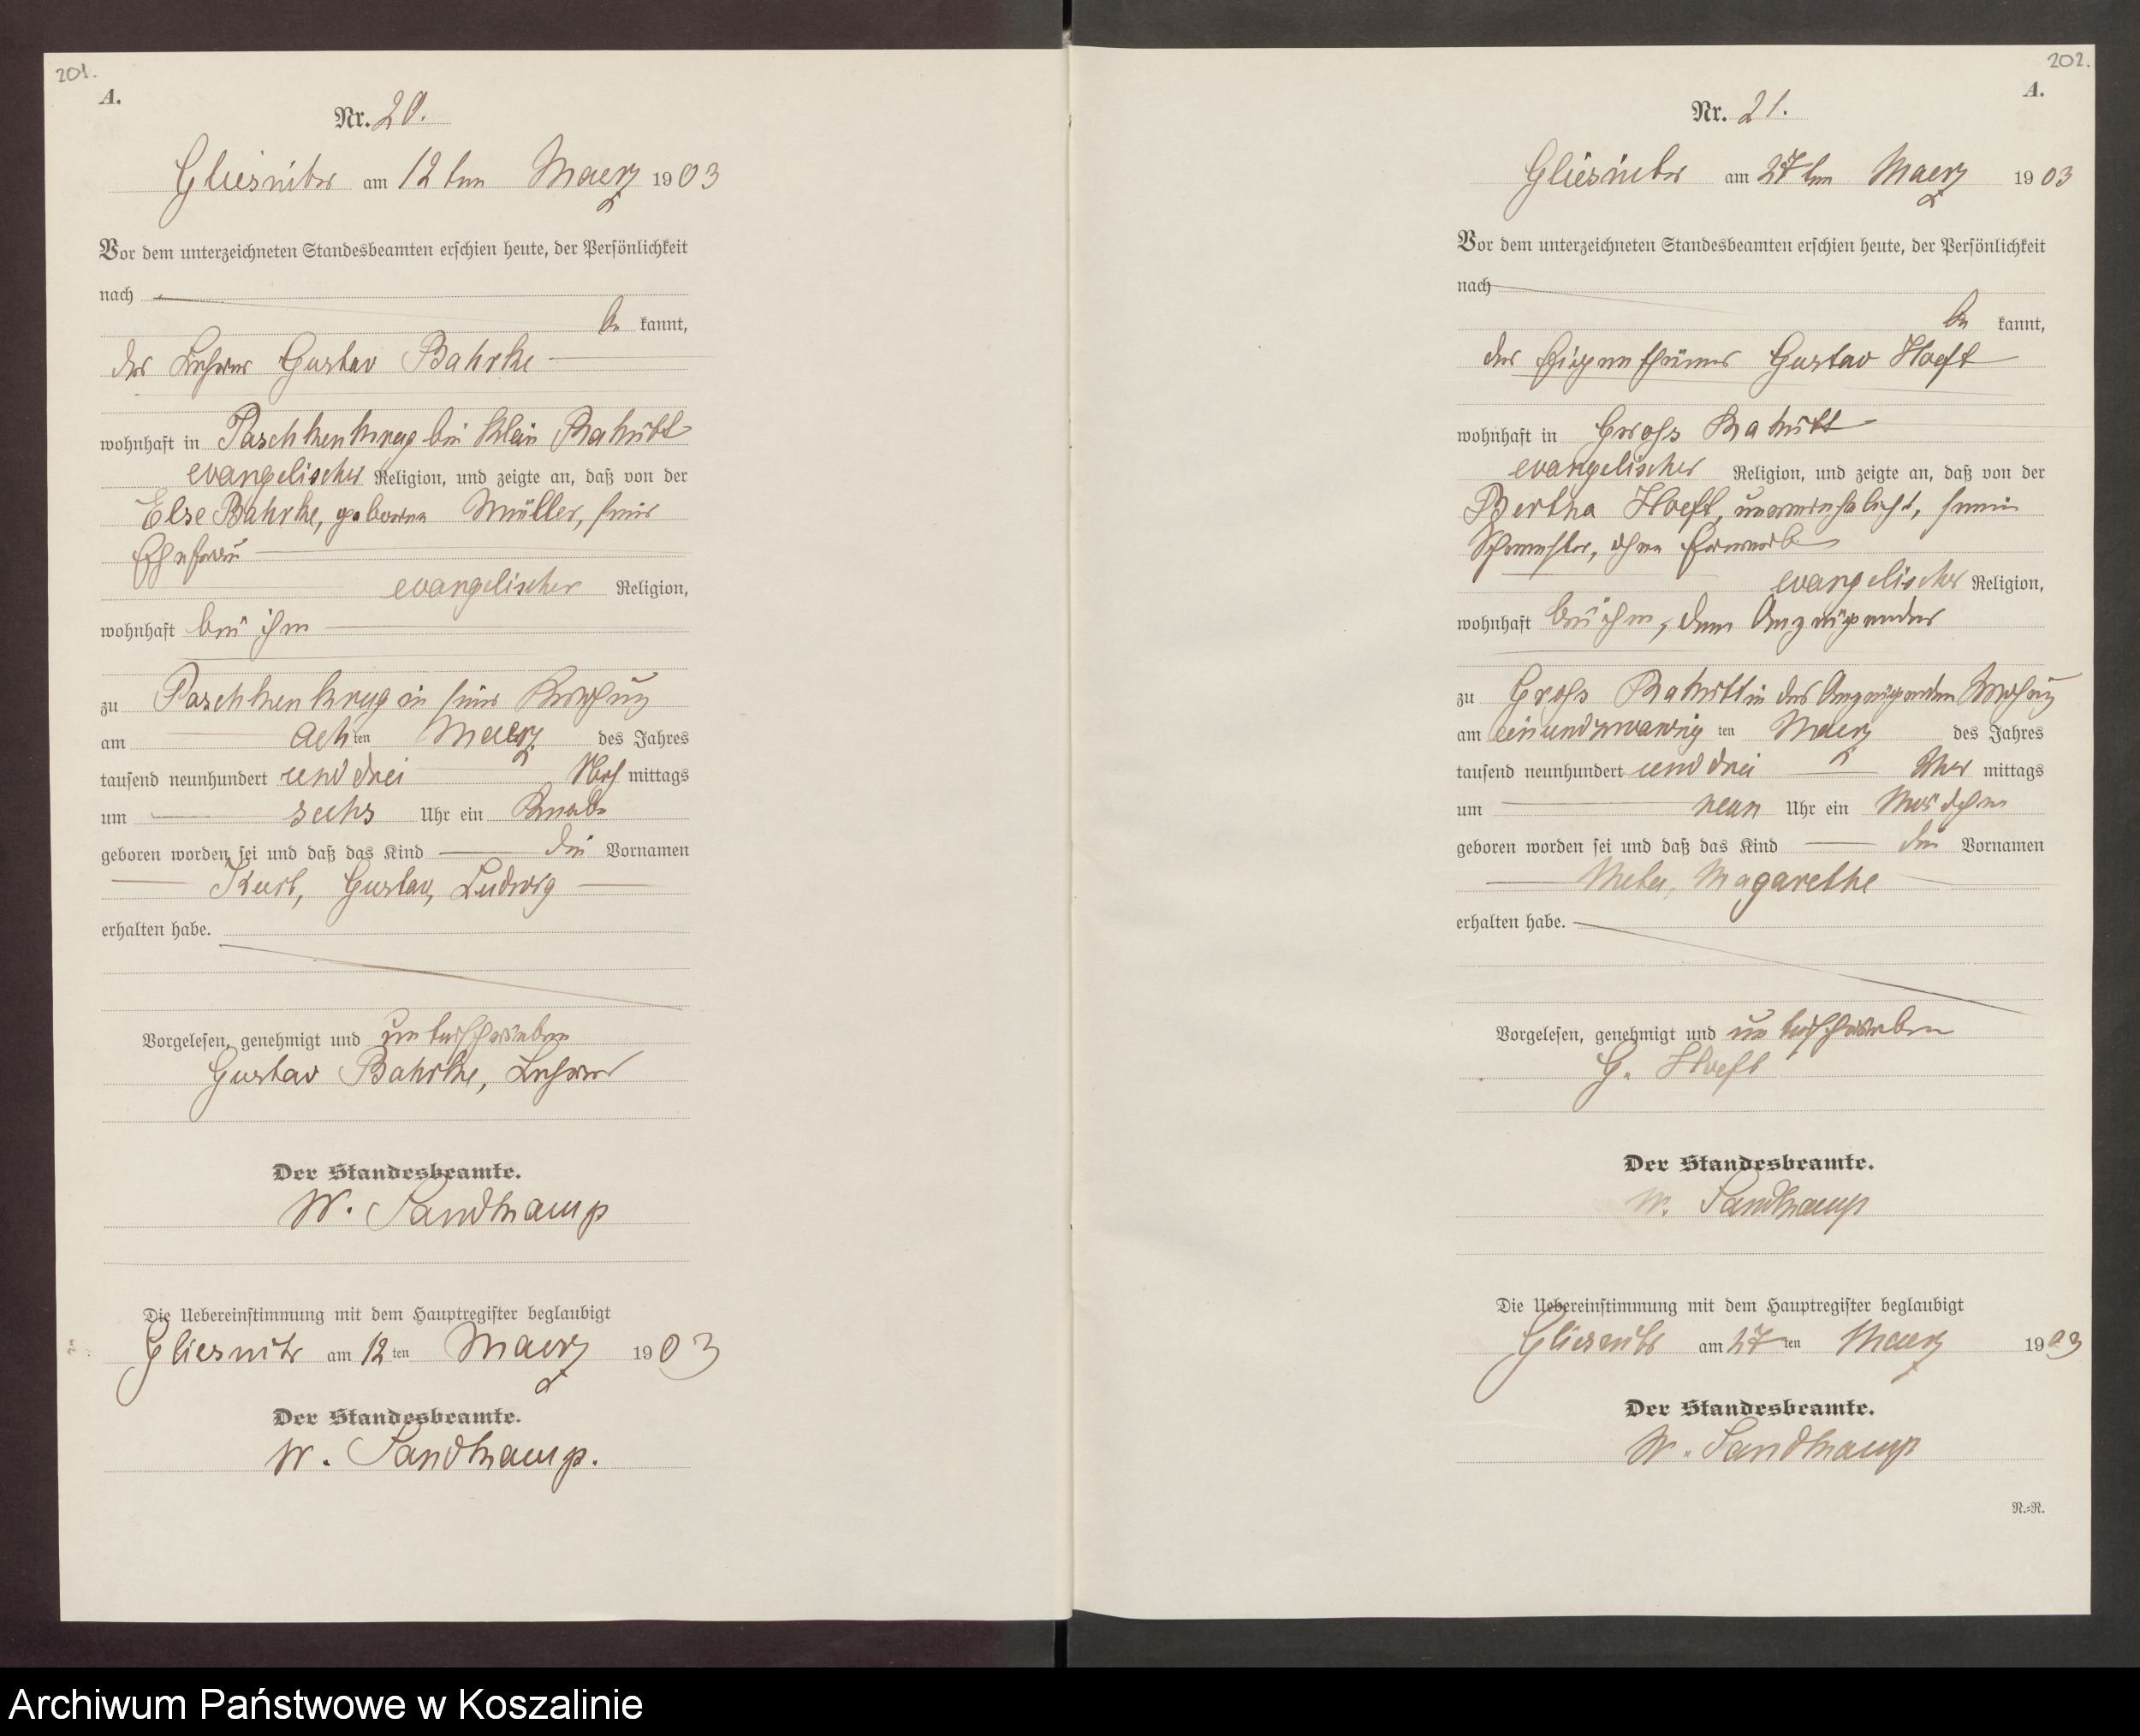 201.
A.
Nr. 20.
Gliesnitz am 12 ten Maerz 1903
Vor dem unterzeichneten Standesbeamten erschien heute, der Persönlichkeit
nach
be kannt,
der Lehrer Gustav Bahrke
wohnhaft in Paschkenkrug bei Klein Rakitt
evangelischer Religion, und zeigte an, daß von der
Else Bahrke, geborene Müller, seiner
Ehefrau
evangelischer Religion,
wohnhaft bei ihm
zu Paschkenkrug in seiner Wohnung
am achten Maerz des Jahres
tausend neunhundert und drei Nach mittags
um sechs Uhr ein Knabe
geboren worden sei und daß das Kind die Vornamen
Kurt, Gustav, Ludwig
erhalten habe.
Vorgelesen, genehmigt und unterschrieben
Gustav Bahrke, Lehrer
Der Standesbeamte.
W. Sandkamp
Die Uebereinstimmung mit dem Hauptregister beglaubigt
Gliesnitz am 12 ten Maerz 1903
Der Standesbeamte.
W. Sandkamp.
202.
A.
Nr. 21.
Gliesnitz am 27 ten Maerz 1903
Vor dem unterzeichneten Standesbeamten erschien heute, der Persönlichkeit
nach
be kannt,
der Eigenthümer Gustav Hoeft
wohnhaft in Gross Rakitt
evangelischer Religion, und zeigte an, daß von der
Bertha Hoeft, unverehelicht, seiner
Schwester, ohne Erwerb
evangelischer Religion,
wohnhaft bei ihm, dem Anzeigenden
zu Gross Rakitt in des Anzeigenden Wohnung
am einundzwanzig ten Maerz des Jahres
tausend neunhundert und drei Vor mittags
um neun Uhr ein Mädchen
geboren worden sei und daß das Kind die Vornamen
Meta, Magarethe
erhalten habe.
Vorgelesen, genehmigt und unterschrieben
G. Hoeft
Der Standesbeamte.
W. Sandkamp
Die Uebereinstimmung mit dem Hauptregister beglaubigt
Gliesnitz am 27 ten Maerz 1903
Der Standesbeamte.
W. Sandkamp
N.=R.
Archiwum Państwowe w Koszalinie